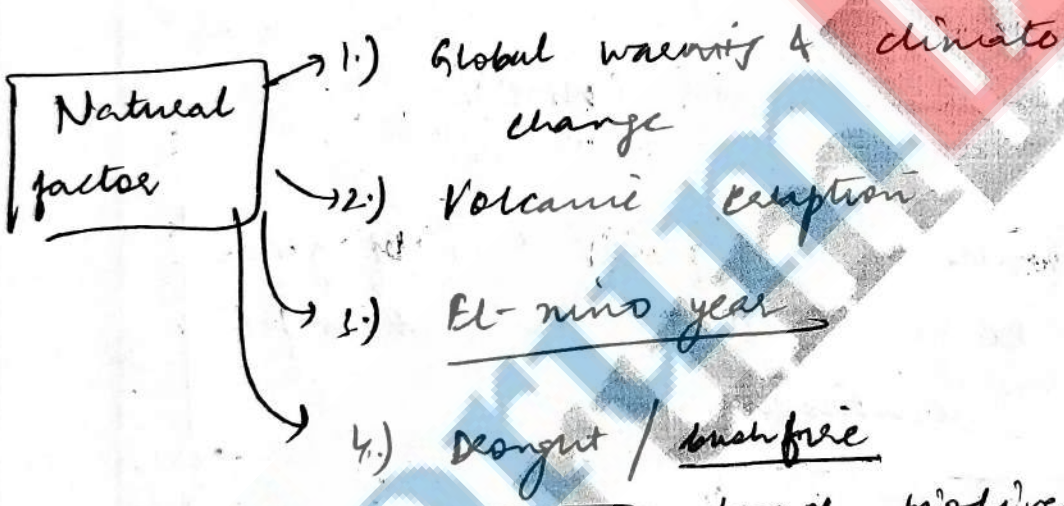 Natural
factor
1.) Global warming & climate
change
2.) Volcanic eruption
3.) El-nino year
4.) Drought / bushfire